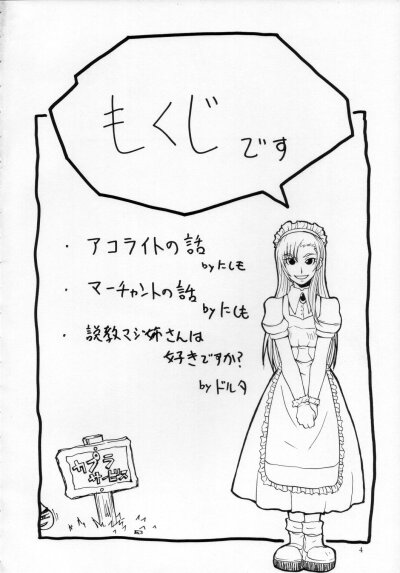 もくじです
・アコライトの話
byにしも
・マーチャントの話
byにしも
・説教マジ姉さんは
好きですか?
byドルタ
カプラ
サービス
4